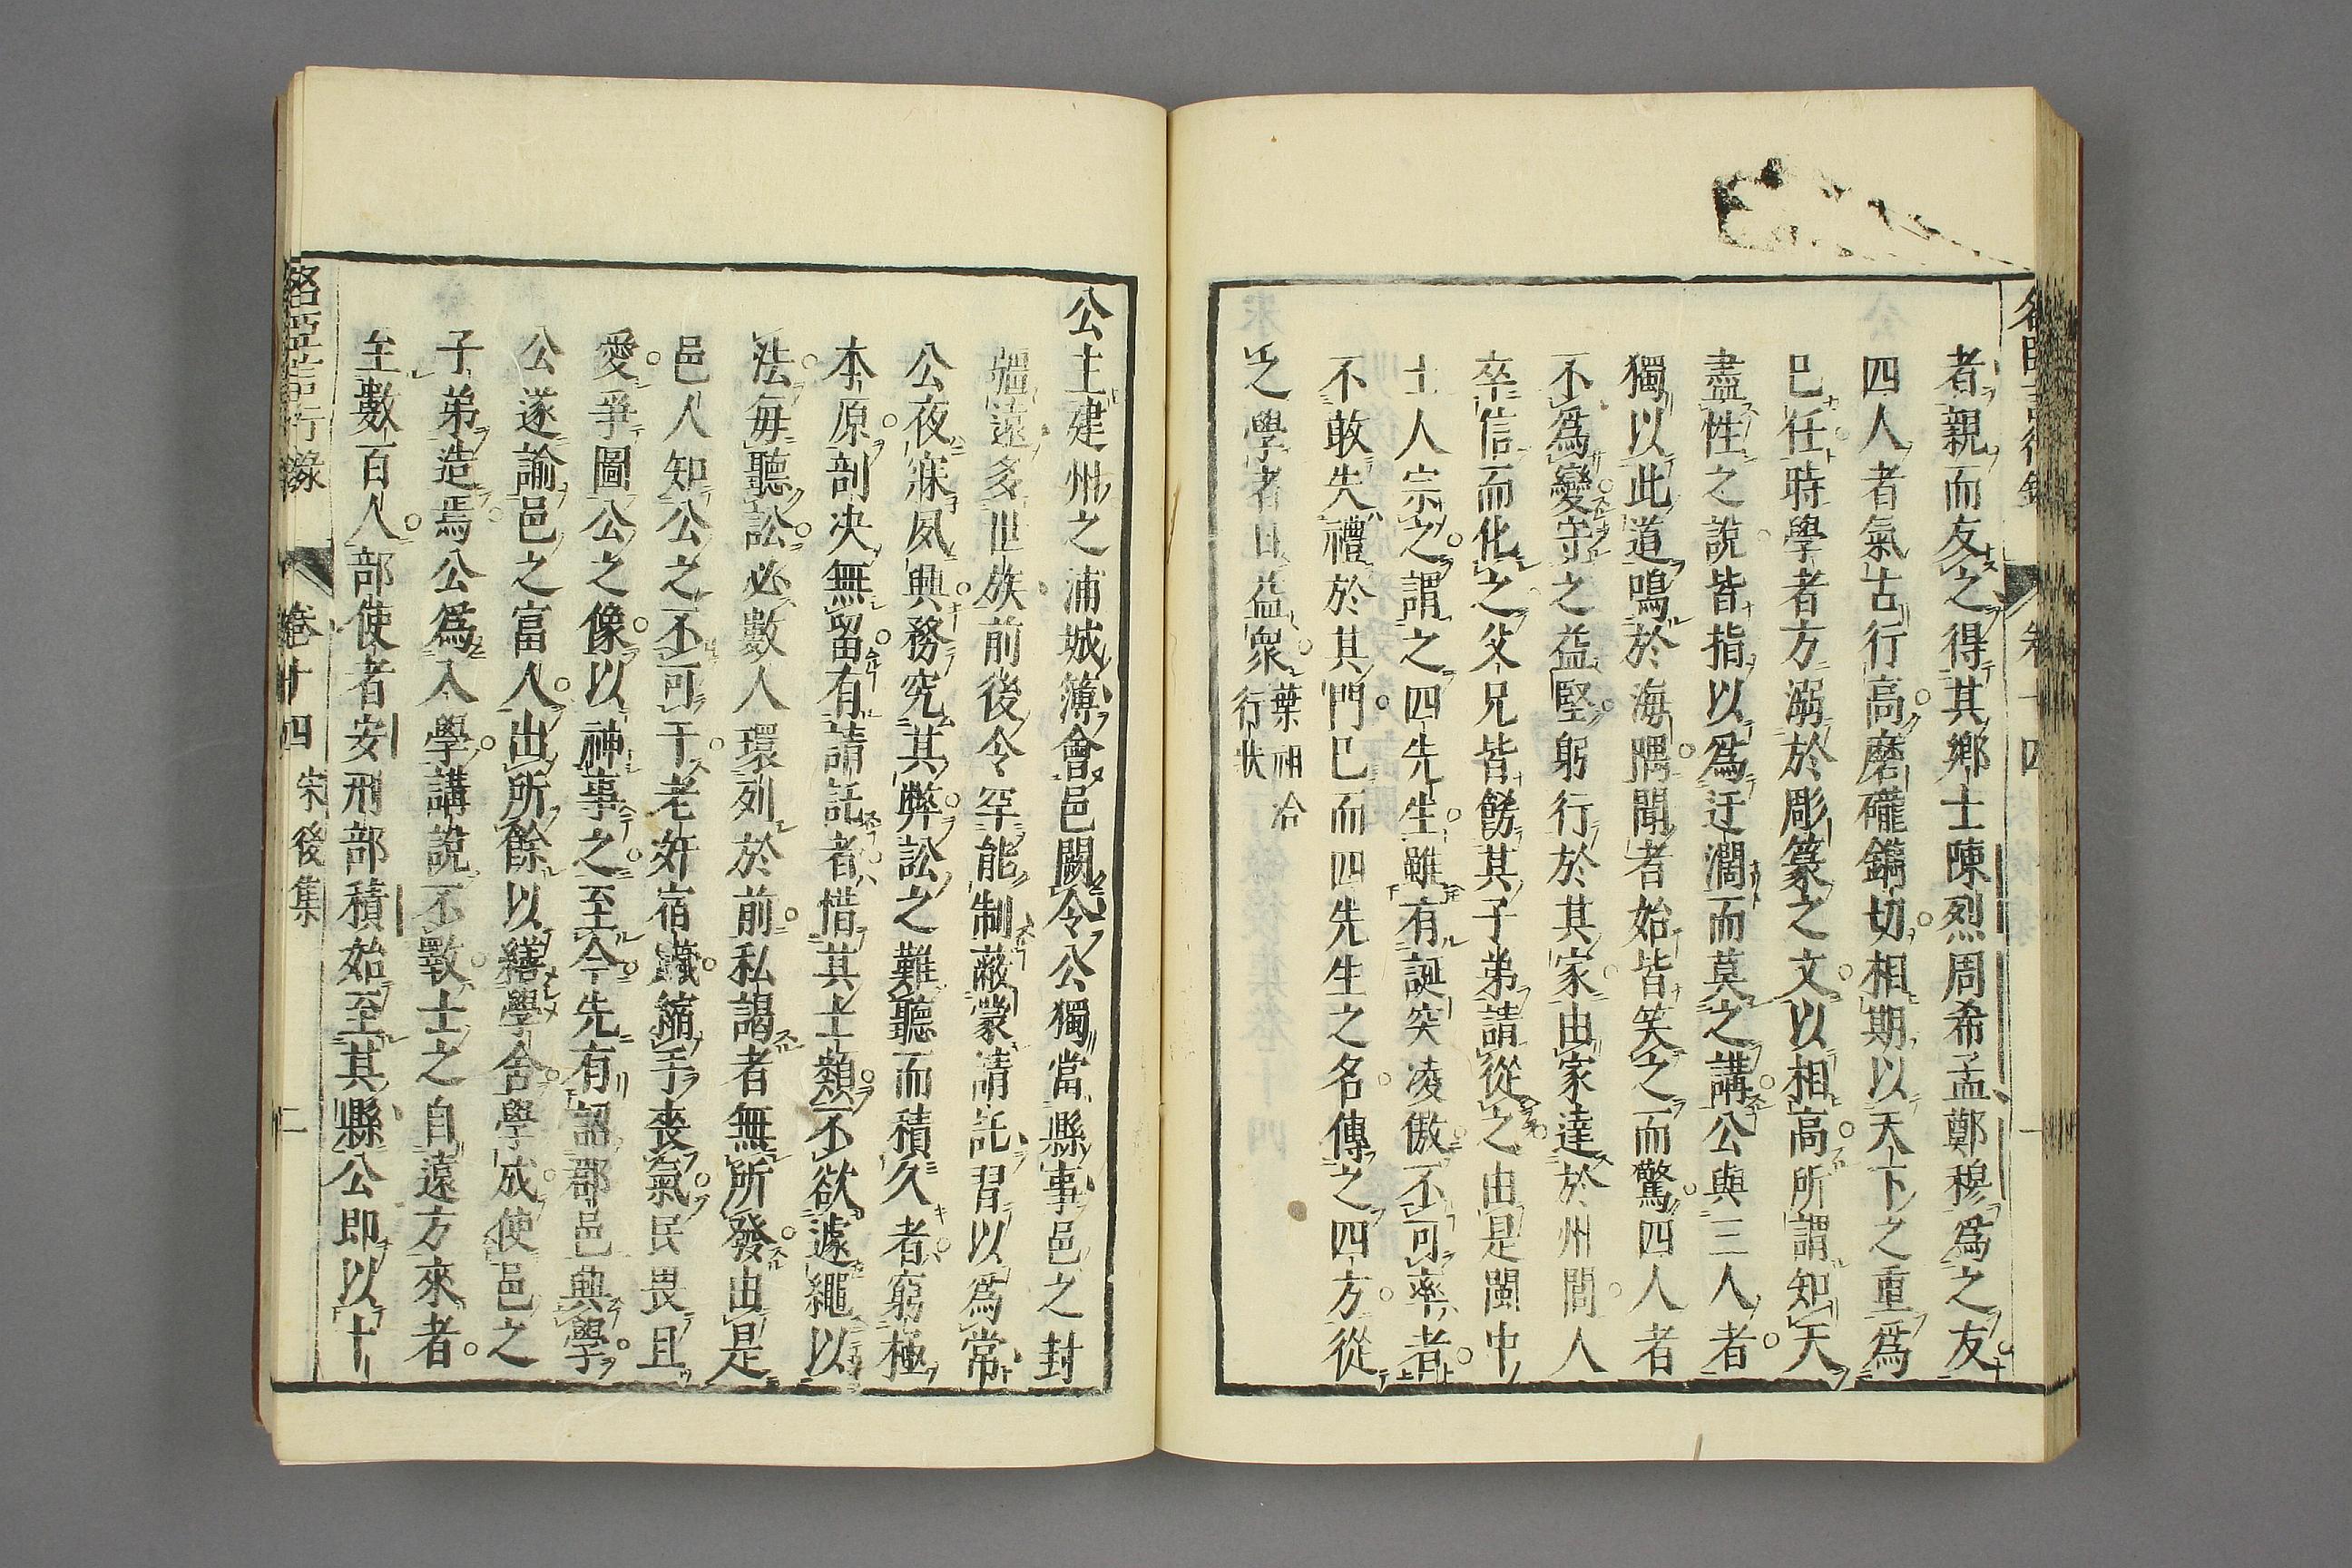 者親而友之得其鄉士陳烈周希孟鄭穆爲之友
四人者氣古行高磨礲鐫切相期以天下之重爲
巳任時學者方溺於彫篆之文以相高所謂知天
盡性之說皆指以爲迂濶而莫之講公與三人者
獨以此道鳴於海隅聞者始皆笑之而驚四人者
不爲變守之益堅躬行於其家由家達於州閭人
卒信而化之父兄皆飭其子弟請從之由是閩中
士人宗之謂之四先生雖有誕突凌傲不可率者
不敢失禮於其門巴而四先生之名傳之四方從
之學者日益衆葉祖洽
行狀
公主建州之浦城簿會邑闕令公獨當縣事邑之封
疆遠多世族前後令罕能制蔽蒙請託習以爲常
公夜寐夙興務究其弊訟之難聽而積久者窮極
本原剖决無留有請託者惜其士類不欲遽繩以
法每聽訟必數人環列於前私謁者無所發由是
邑人知公之不可干老奸宿贓縮手喪氣民畏且
愛爭圖公之像以神事之至今先有詔郡邑興學
公遂諭邑之富人出所餘以繕學舍學成使邑之
子弟造焉公爲入學講說不斁士之自遠方來者
至數百人部使者安刑部積始至其縣公即以十
名臣言行錄 卷十四 宋後集 二